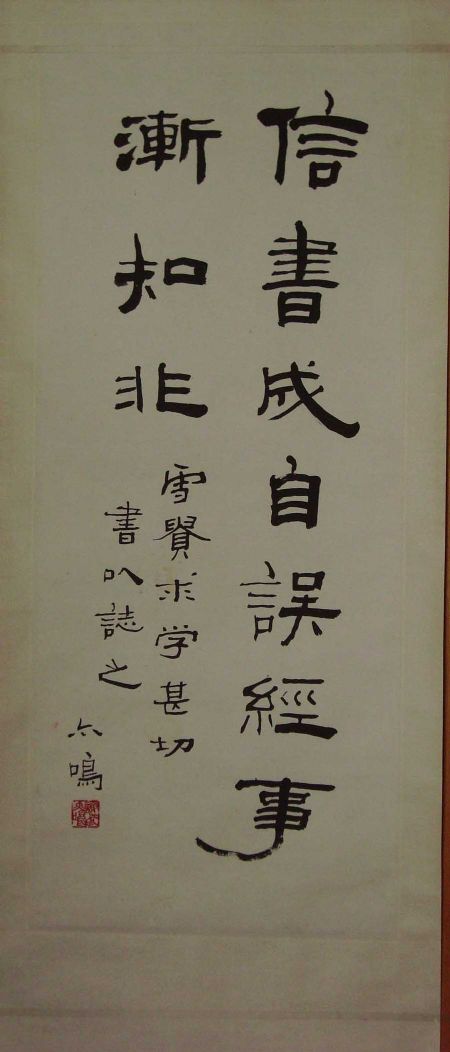 信書成自誤經事
漸知非
雪賢求学甚切
書以誌之
六鳴